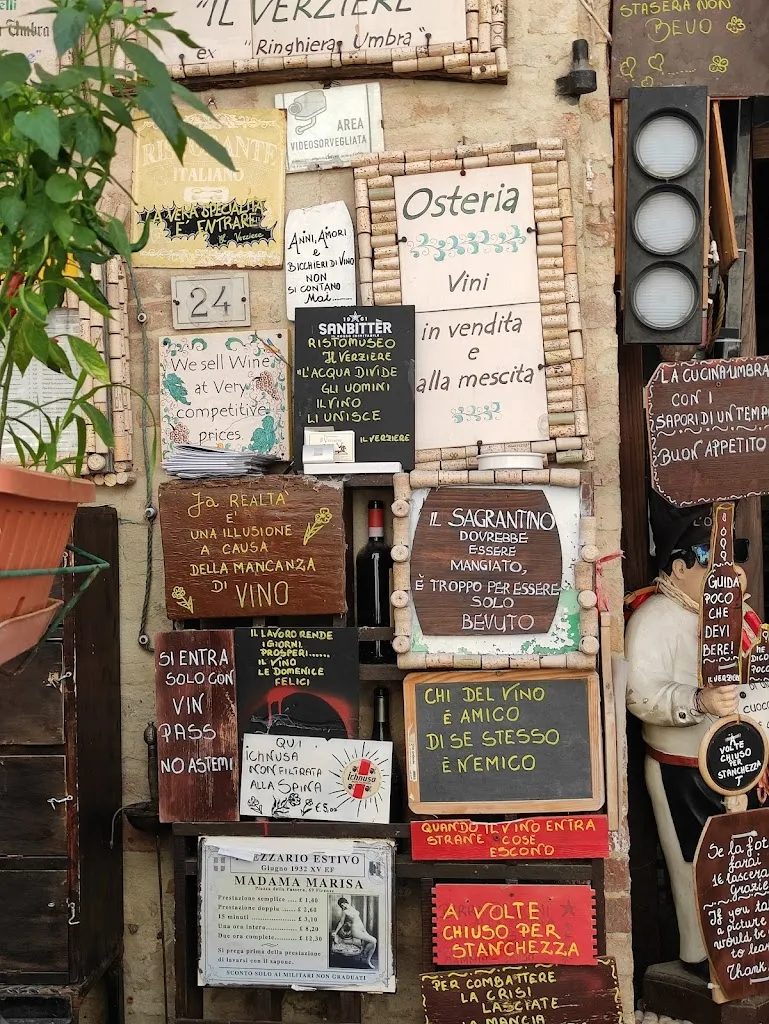 "IL VERZIERE
ex "Ringhiera Umbra"
STASERA NON
BEVO
AREA
VIDEOSORVEGLIATA
RISTORANTE
ITALIANO
LA VERA SPECIALITÀ
E' ENTRARE
Il Verziere
ANNI, AMORI
e
BICCHIERI DI VINO
NON
SI CONTANO
MAI.....
Osteria
Vini
in vendita
e
alla mescita
24
We sell Wine
at Very
competitive
prices.
SANBITTÈR
RISTOMUSEO
IL VERZIERE
"L'ACQUA DIVIDE
GLI UOMINI
IL VINO
LI UNISCE
IL VERZIERE
LA CUCINA UMBRA
CON I
SAPORI DI UN TEMPO
BUON APPETITO
La REALTA'
E'
UNA ILLUSIONE
A CAUSA
DELLA MANCANZA
DI VINO
IL SAGRANTINO
DOVREBBE
ESSERE
MANGIATO,
È TROPPO PER ESSERE
SOLO
BEVUTO
GUIDA
POCO
CHE
DEVI
BERE!
IL VERZIERE
SI ENTRA
SOLO CON
VIN
PASS
NO ASTEMI
IL LAVORO RENDE
I GIORNI
PROSPERI......
IL VINO
LE DOMENICE
FELICI
QUI
ICHNUSA
NON FILTRATA
ALLA SPINA
€5,00
Ichnusa
CHI DEL VINO
È AMICO
DI SE STESSO
È NEMICO
A
VOLTE
CHIUSO
PER
STANCHEZZA
QUANDO IL VINO ENTRA
STRANE COSE
ESCONO
PREZZARIO ESTIVO
Giugno 1932 XV EF
MADAMA MARISA
Prestazione semplice .... £ 1,40
Prestazione doppia .... £ 2,60
15 minuti .... £ 3,10
Una ora intera .... £ 8,20
Due ore complete .... £ 12,30
Si prega prima della prestazione
di lavarsi con il sapone.
SCONTO SOLO AI MILITARI NON GRADUATI
A VOLTE
CHIUSO PER
STANCHEZZA
PER COMBATTERE
LA CRISI
LASCIATE
LA MANCIA
Se la fot
farai
lascera
Grazie
If you ta
a picture
would be
to lea
Thank